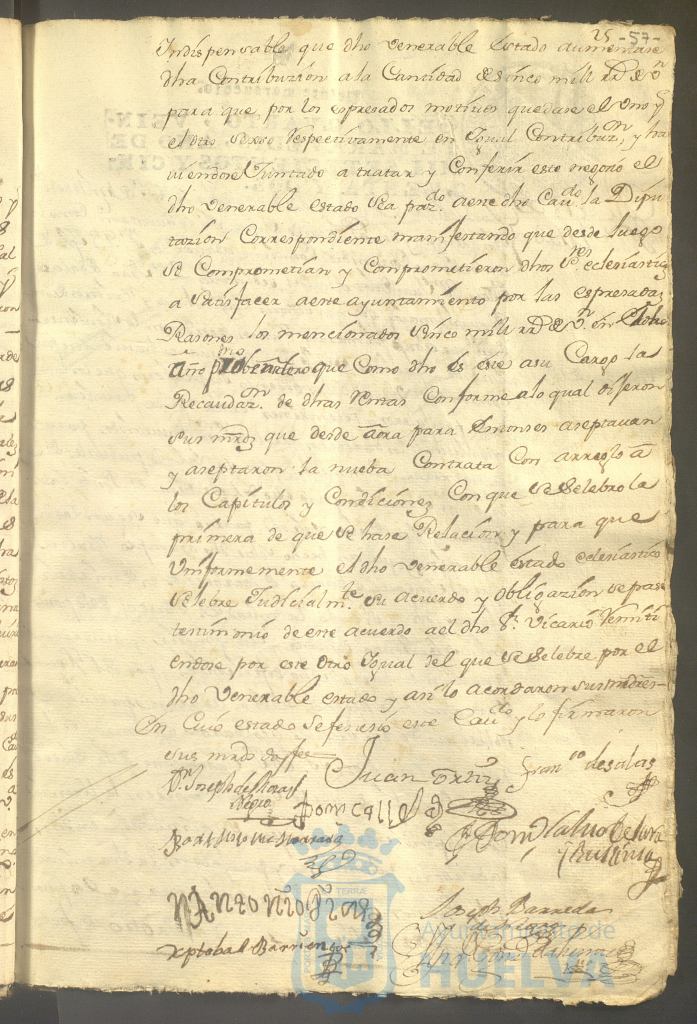 25-57-
Indispensable que dho venerable estado aumentase
dha Contribuzion ala Cantidad de sinco mill rr.s de v.n
para que por los espresados motivos quedase el Uno y
el otro Sexso Respectivamente en Igual Contribuz.n, y ha
viendose Juntado a tratar y Conferir este negozio el
dho venerable estado Sea paz.do aeste dho Cau.do la Dipu
tazion Correspondiente manifestando que desde luego
se Comprometian y Comprometieron dhos S.res eclesiasti.s
a Satisfacer aeste ayuntamiento por las espresadas
Rasones los mencionados sinco mill rr.s de v.n en
año proximo benidero que Como dho es este asu Cargo la
Recaudaz.n de dhas Rentas Conforme alo qual dijeron
sus mrds que desde aora para entonses aseptavan
y aseptaron la nueba Contrata Con arreglo a
los Capitulos y Condiciones Con que se Selebro la
primera de que se hase Relacion y para que
Uniformemente el dho venerable estado eclesiastico
Selebre Judicialm.te su acuerdo y obligazion se pase
testimonio de este acuerdo a el dho S.r Vicario Remiti
endose por este otro Igual del que se Selebre por el
dho venerable estado y asi lo acordaron sus mrdes-
En Cuio estado se feneció este Cau.do y lo firmaron
sus mrds doy fee
Juan Ortiz
Fran.co de salas
D.n Joseph de
Antonio Diaz
Joseph Barreda
Xptobal Barrientos
Ayuntamiento de
HUELVA